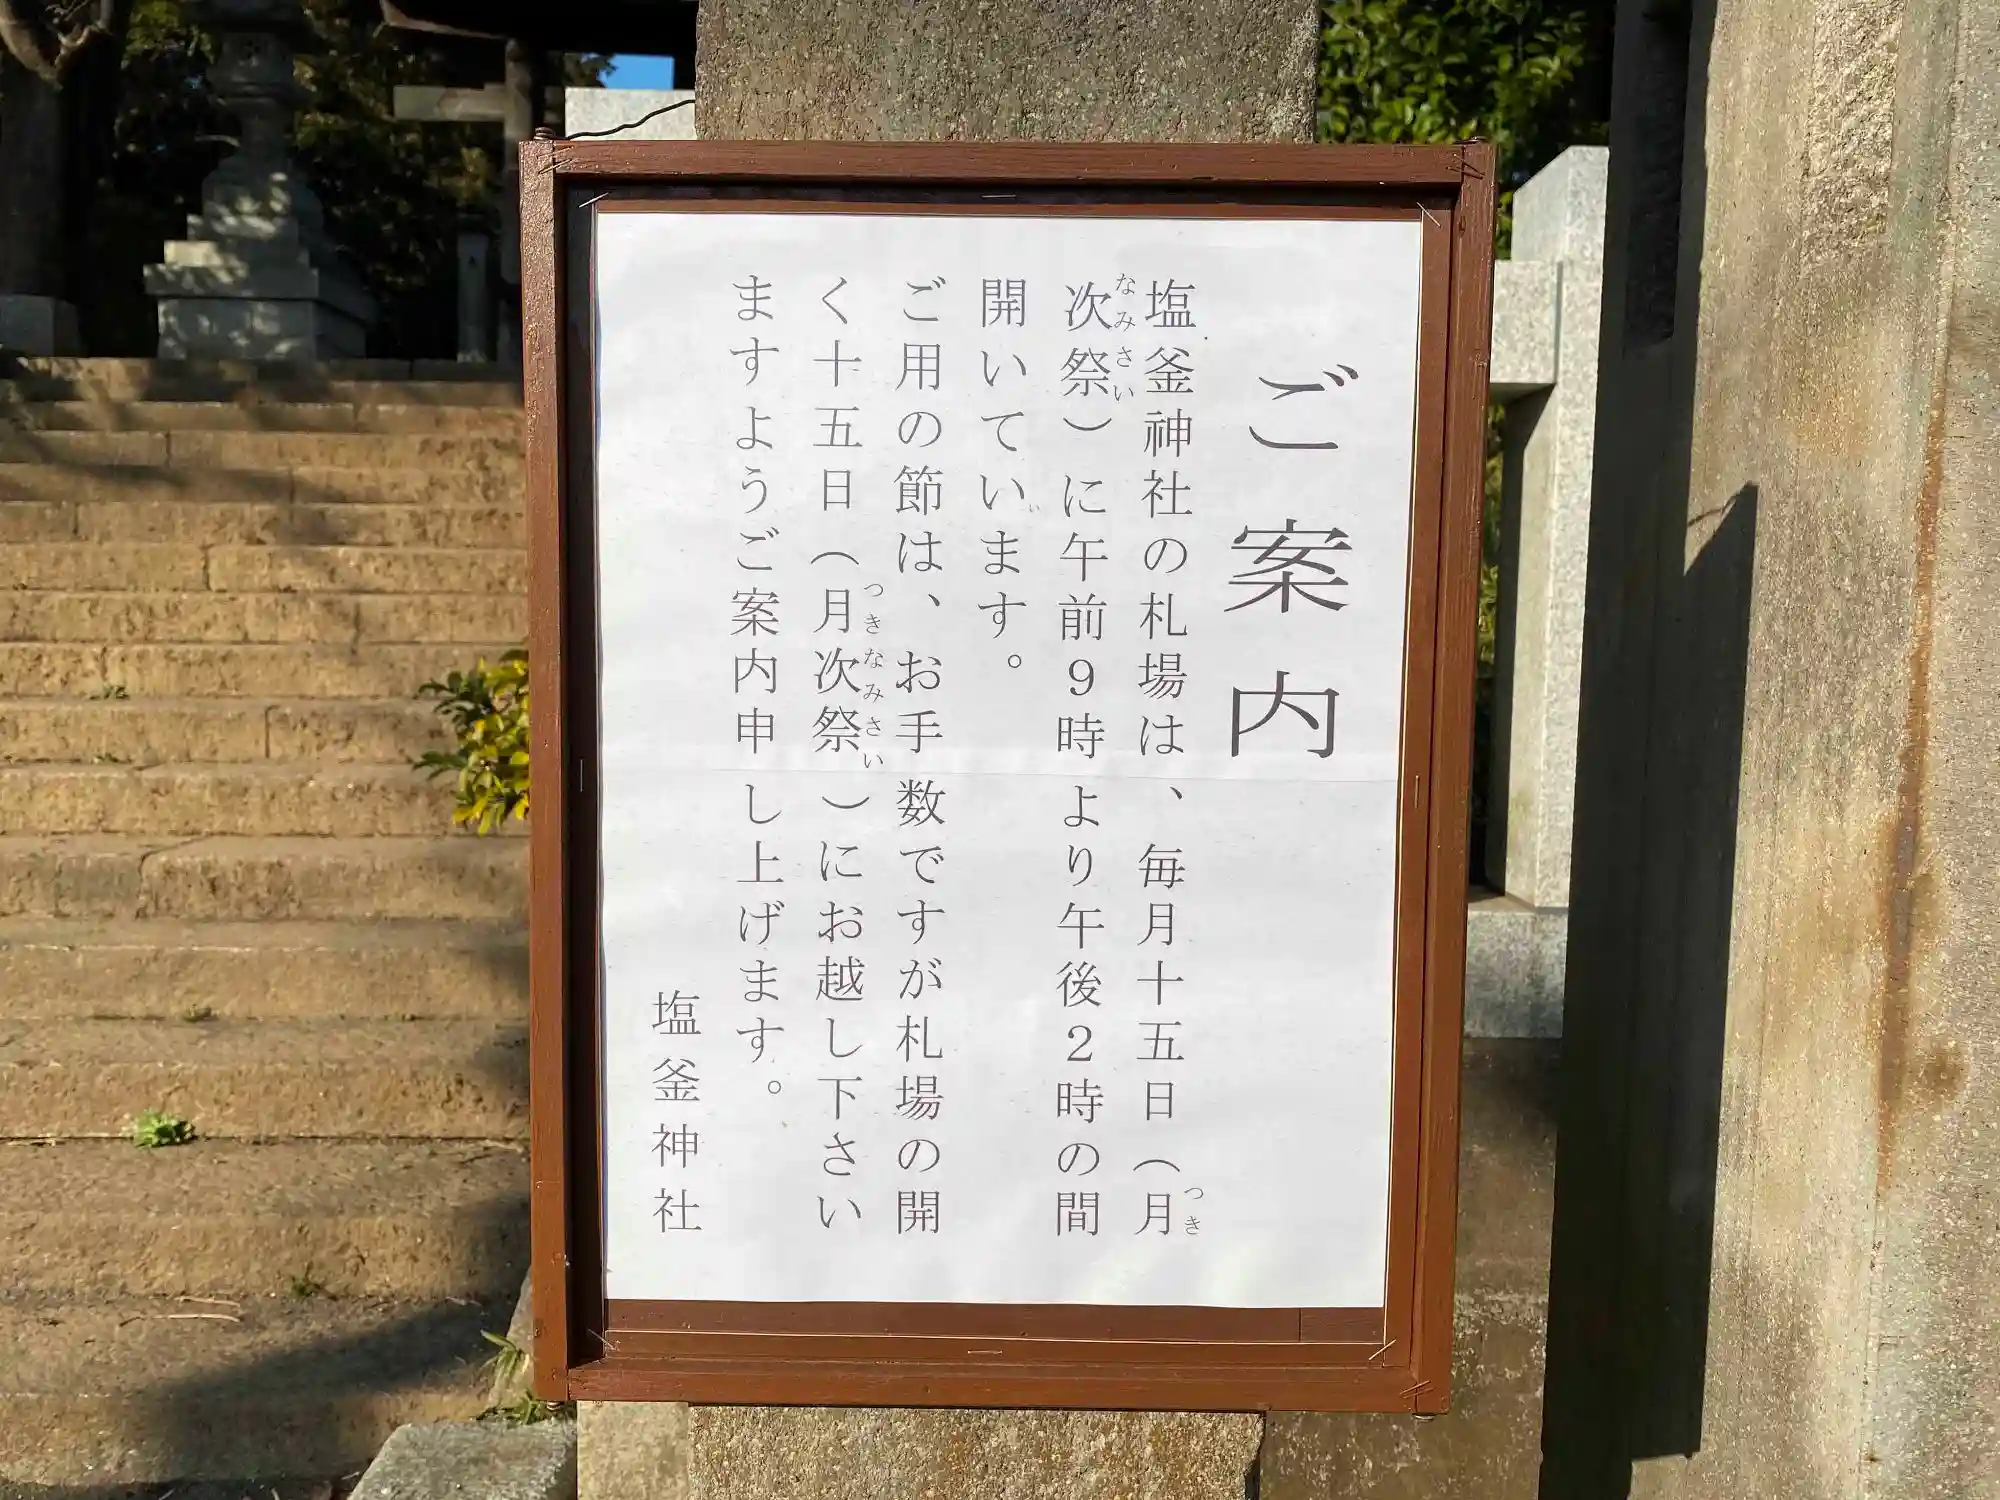 ご案内
塩釜神社の札場は、毎月十五日（月
次祭）に午前9時より午後2時の間
開いています。
ご用の節は、お手数ですが札場の開
く十五日（月次祭）にお越し下さい
ますようご案内申し上げます。
塩釜神社
つき
なみさい
つきなみさい